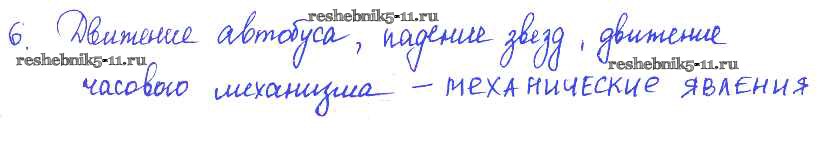 reshebnik5-11.ru
6. Движение автобуса, падение звезд, движение
reshebnik5-11.ru reshebnik5-11.ru
часового механизма – МЕХАНИЧЕСКИЕ ЯВЛЕНИЯ